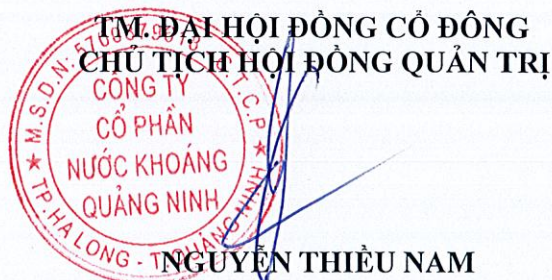 TM. ĐẠI HỘI ĐỒNG CỔ ĐÔNG
CHỦ TỊCH HỘI ĐỒNG QUẢN TRỊ
CÔNG TY
CỔ PHẦN
NƯỚC KHOÁNG
QUẢNG NINH
TP HẠ LONG - T. QUẢNG NINH
NGUYỄN THIỀU NAM